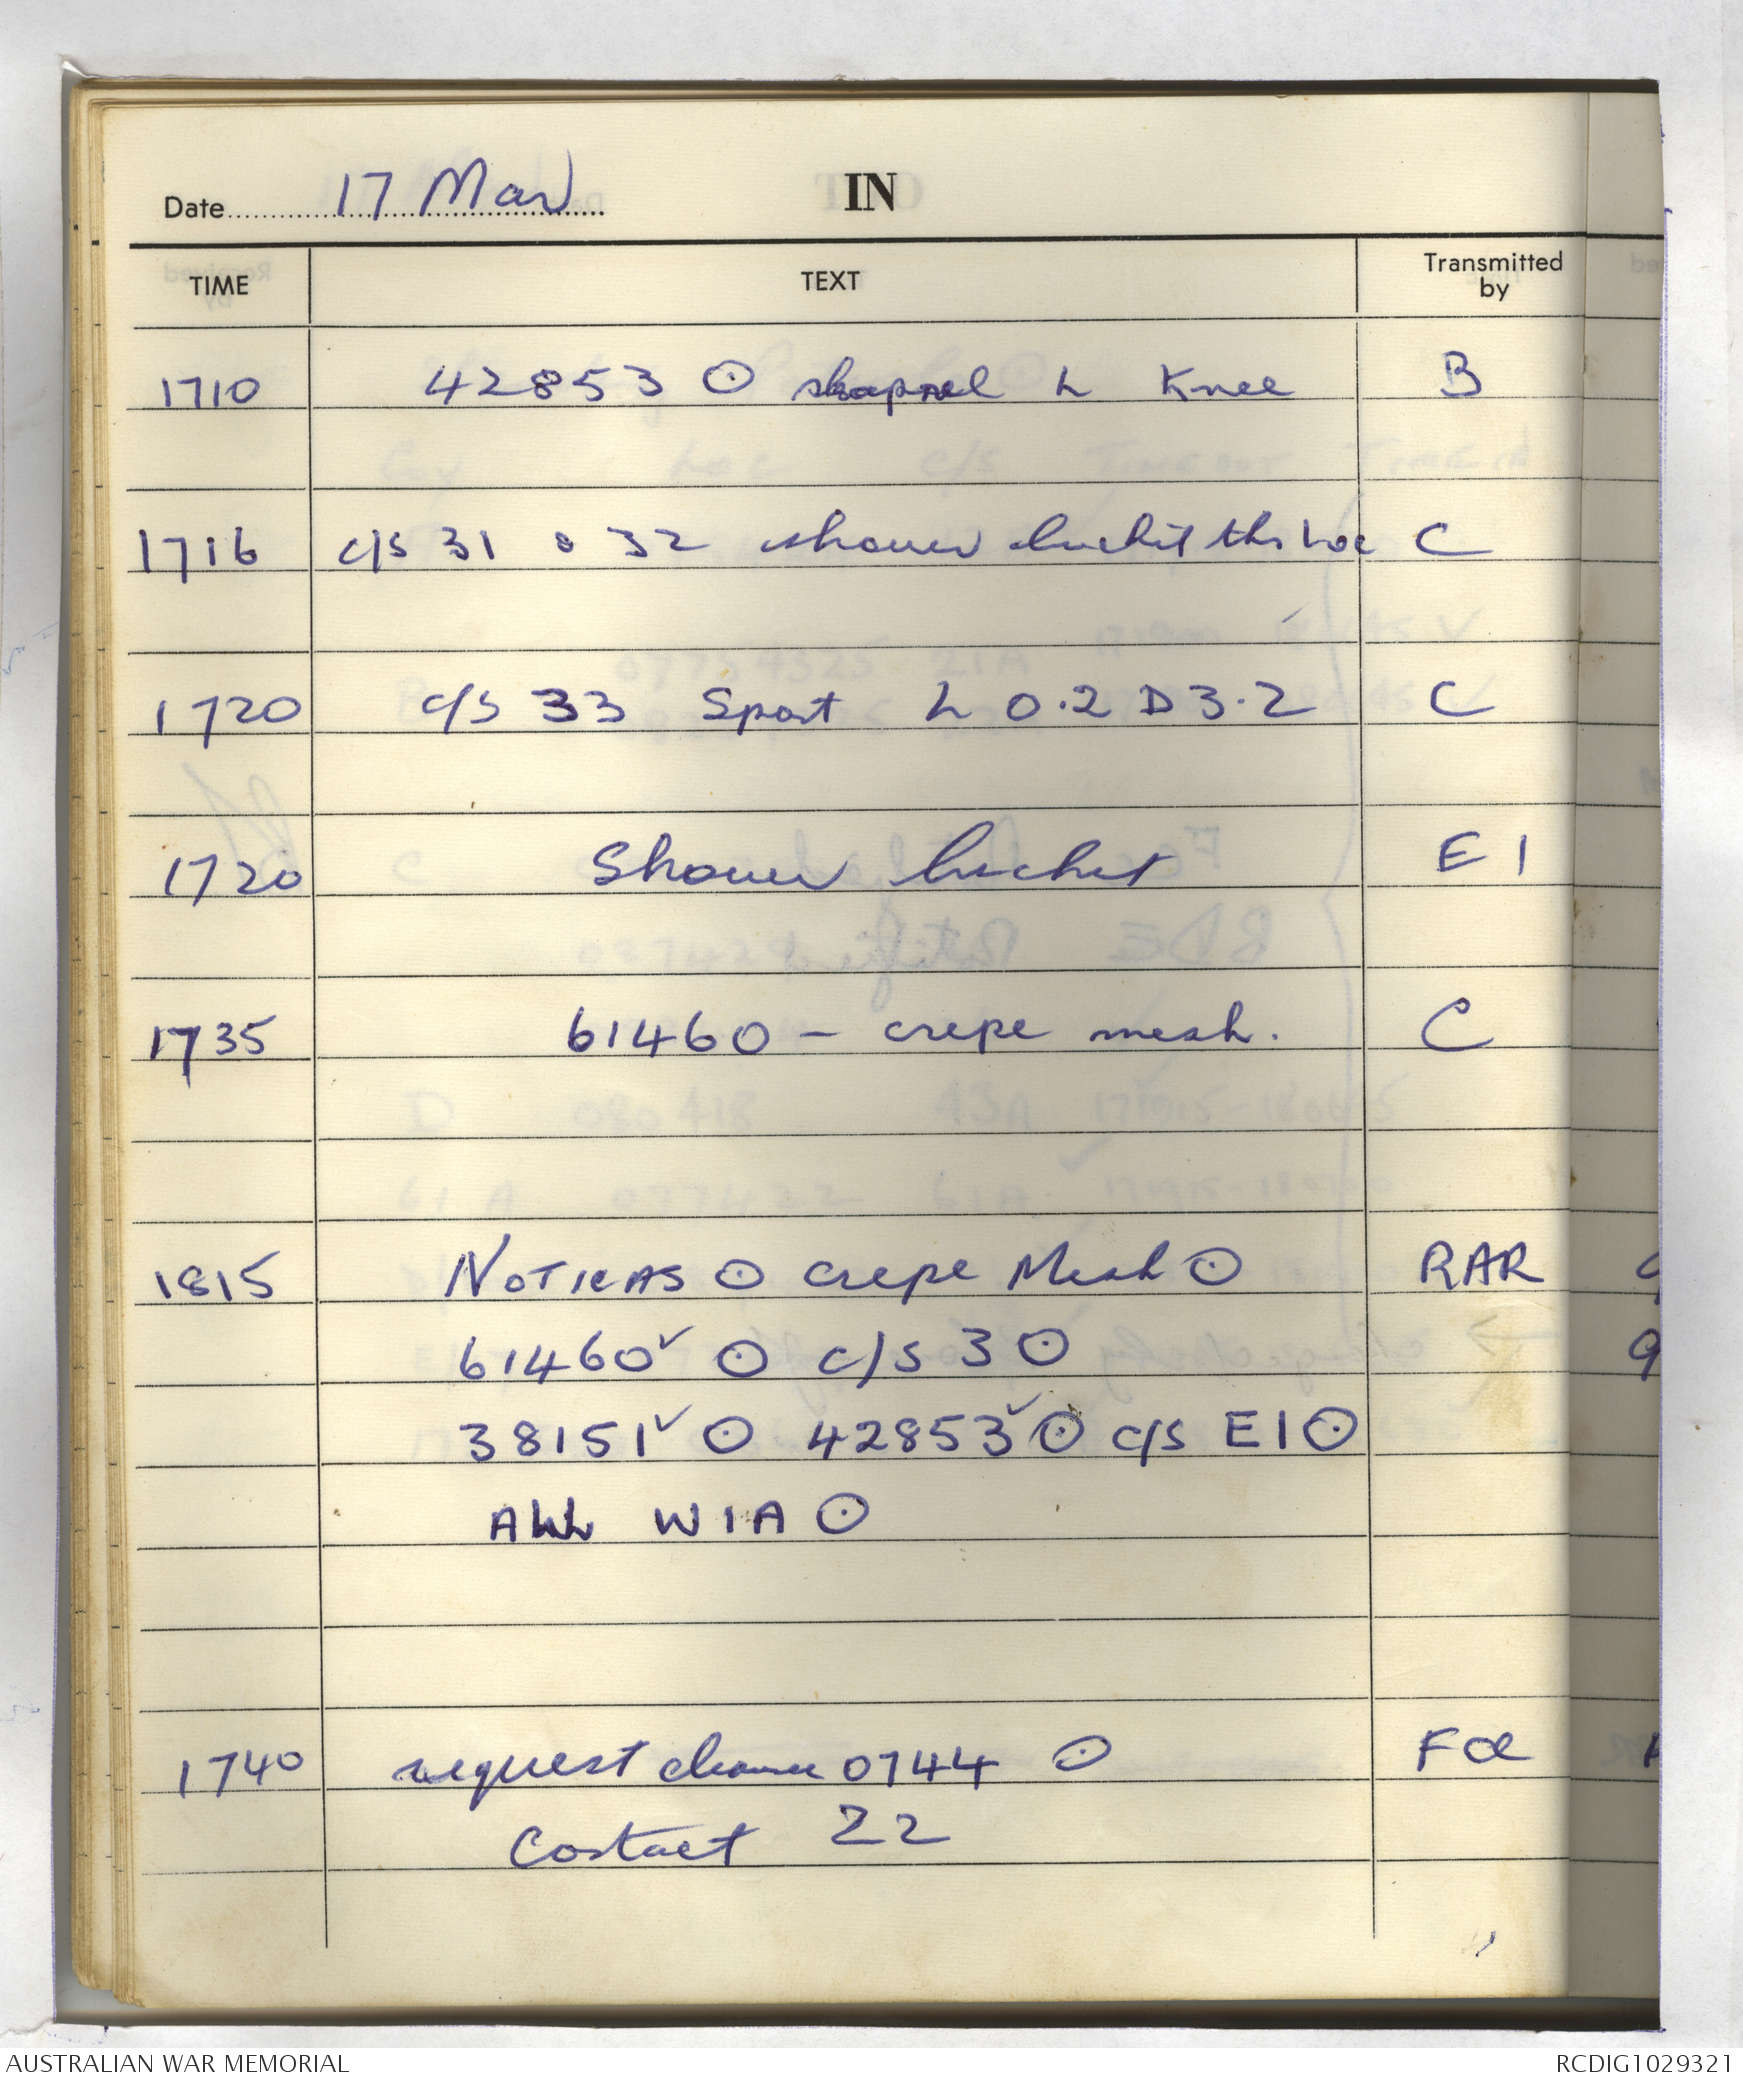 Date 17 Mar
IN
TIME TEXT Transmitted by
1710 42853 ⊙ shapnel L Knee B
1716 c/s 31 & 32 shower bucket this Loc C
1720 c/s 33 Spart L 0.2 D 3.2 C
1720 Shower bucket E1
1735 61460 - crepe mesh. C
1815 NOTICAS ⊙ crepe Mesh ⊙ RAR
61460 ✓ ⊙ c/s 3 ⊙
38151 ✓ ⊙ 42853 ✓ ⊙ c/s E1 ⊙
ALL WIA ⊙
1740 request 0744 ⊙
Contact 22
AUSTRALIAN WAR MEMORIAL
RCDIG1029321